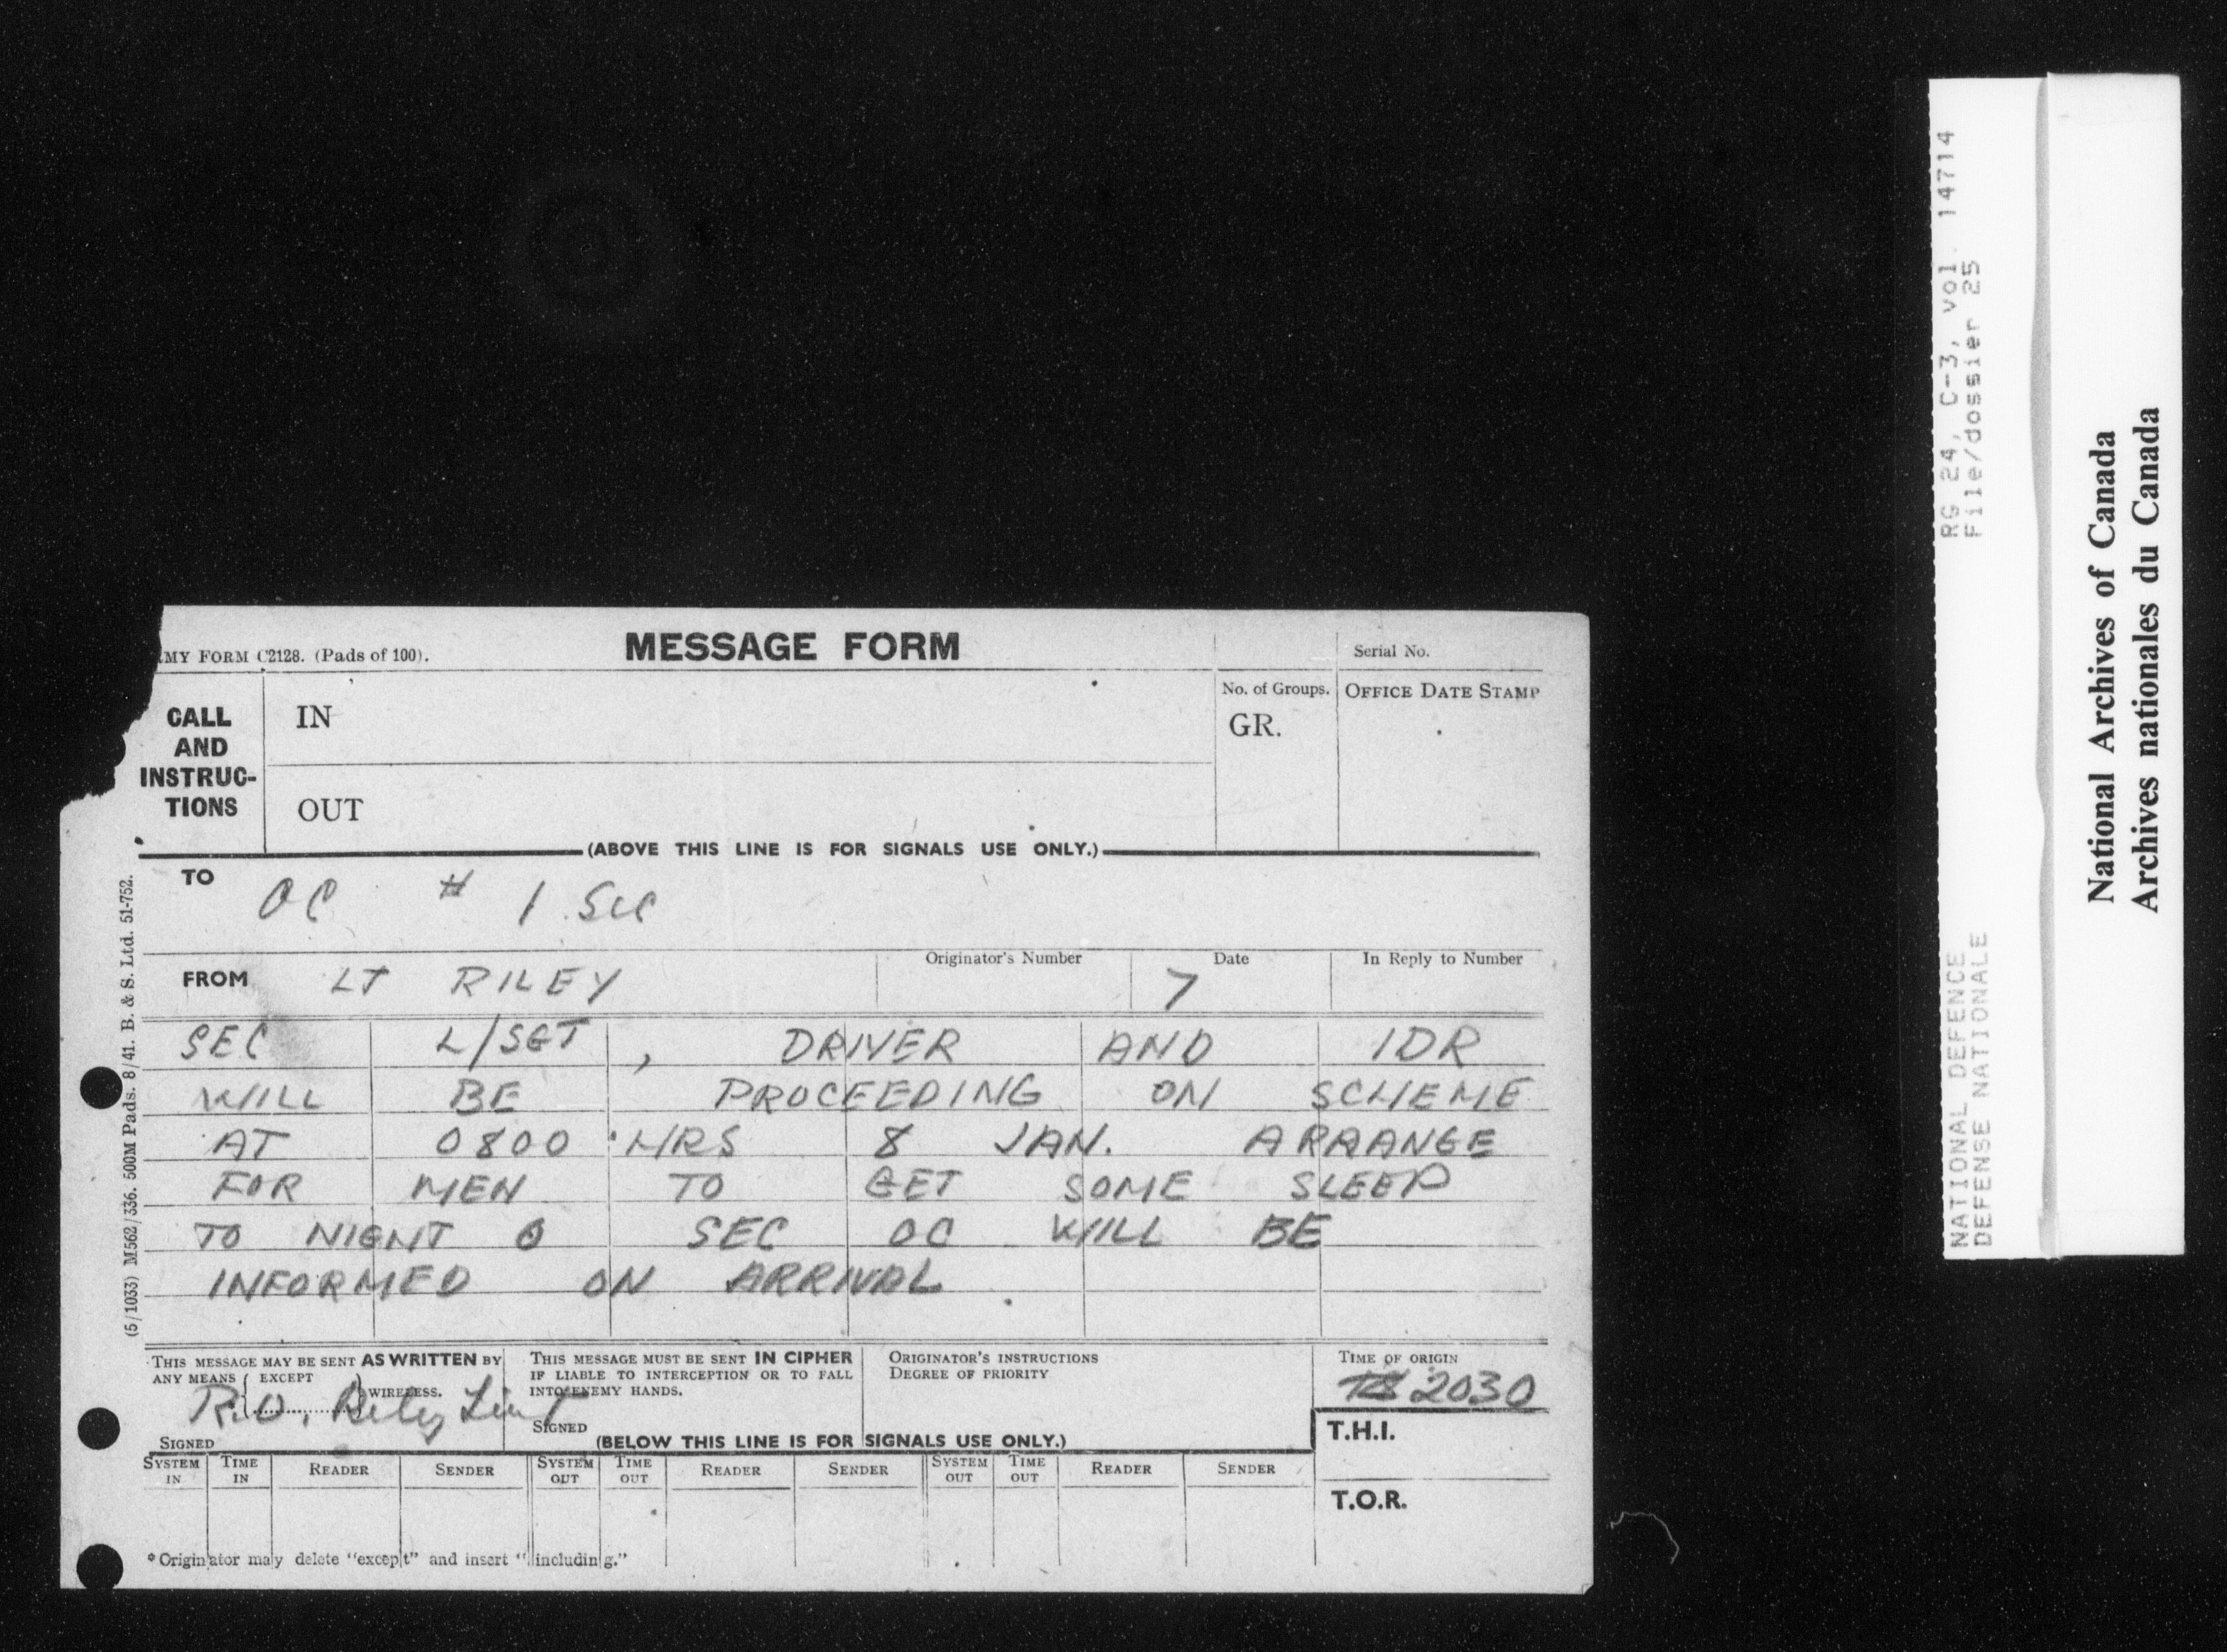 MY FORM C2128. (Pads of 100).
MESSAGE FORM
Serial No.
CALL AND INSTRUC- TIONS
IN
No. of Groups.
GR.
OFFICE DATE STAMP
OUT
(ABOVE THIS LINE IS FOR SIGNALS USE ONLY.)
TO OC # 1 Sec
FROM LT RILEY
Originator's Number
Date 7
In Reply to Number
SEC L/SGT, DRIVER AND IDR
WILL BE PROCEEDING ON SCHEME
AT 0800 HRS 8 JAN. ARAANGE
FOR MEN TO GET SOME SLEEP
TO NIGHT O SEC OC WILL BE
INFORMED ON ARRIVAL
THIS MESSAGE MAY BE SENT AS WRITTEN BY
ANY MEANS { EXCEPT } WIRELESS.
R.O. Riley Lieut
SIGNED
THIS MESSAGE MUST BE SENT IN CIPHER
IF LIABLE TO INTERCEPTION OR TO FALL
INTO ENEMY HANDS.
SIGNED
ORIGINATOR'S INSTRUCTIONS
DEGREE OF PRIORITY
TIME OF ORIGIN
2030
(BELOW THIS LINE IS FOR SIGNALS USE ONLY.)
T.H.I.
SYSTEM IN TIME IN READER SENDER SYSTEM OUT TIME OUT READER SENDER SYSTEM OUT TIME OUT READER SENDER
T.O.R.
*Originator may delete "except" and insert "including."
(5/1033) M562/336. 500M Pads. 8/41. B. & S. Ltd. 51-752.
RG 24, C-3, vol. 14714
File/dossier 25
NATIONAL DEFENCE
DEFENSE NATIONALE
National Archives of Canada
Archives nationales du Canada